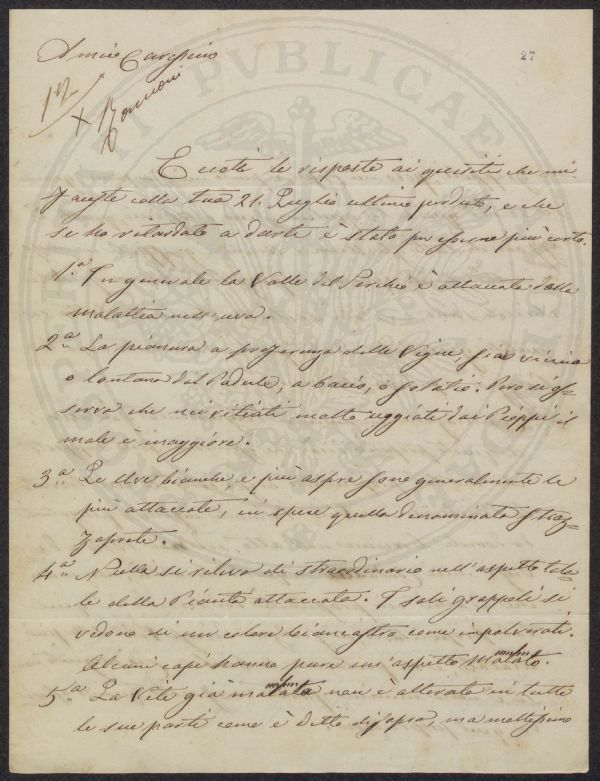 27
Amico Carissimo
Eccoti le risposte ai quesiti che mi
faceste colla tua 21. Luglio ultimo perduto, e che
se ho ritardato a darte è stato per esserne più certo.
1.a In generale la Valle del è attaccata dalla
malattia nell'uva.
2.a La pianura a preferenza delle Vigne, sia vicina
o lontana dal Padule, a bacìo, o solatìo. Però si os-
serva che nei vitiati molto uggiati dai Pioppi il
male è maggiore.
3.a Le Uve bianche, e più aspre sono generalmente le
più attaccate, in specie quella denominata Straz-
zaprete.
4.a Nulla si rileva di straordinario nell'aspetto tota-
le della Pianta attaccata. I soli grappoli si
vedono di un colore biancastro come impolverati.
Alcuni capi hanno pure un'aspetto malato.
5.a La Vite già malata non è alterata in tutte
le sue parti come è detto di sopra, ma moltissimo